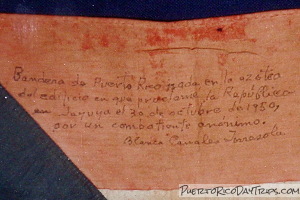 Bandera de Puerto Rico izada en la azotea
del edificio en que proclamé la República
en Jayuya el 30 de octubre de 1950,
por un combatiente anonimo.
Blanca Canales Torresola
PUERTORICODAYTRIPS.COM